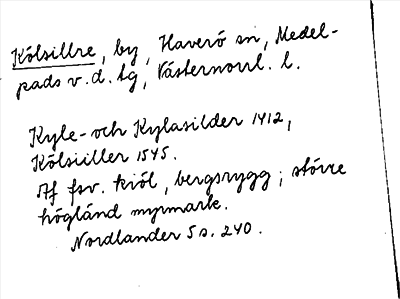 Kölsillre, by, Haverö sn, Medel-
pads v.d. tg, Västernorrl. l.
Kyle- och Kylasilder 1412,
Kölsiiller 1545.
Af fsv. kiöl, bergsrygg; större
högländ myrmark.
Nordlander 5 s. 240.